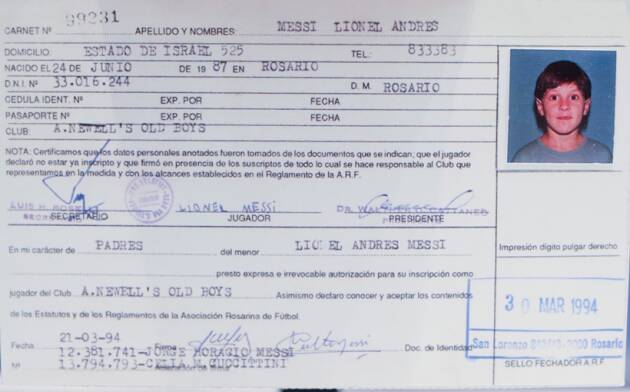 CARNET Nº 99231 APELLIDO Y NOMBRES: MESSI LIONEL ANDRES
DOMICILIO: ESTADO DE ISRAEL 525 TEL: 833383
NACIDO EL 24 DE JUNIO DE 1987 EN ROSARIO
D.N.I. Nº 33.016.244 D. M. ROSARIO
CEDULA IDENT. Nº EXP. POR FECHA
PASAPORTE Nº EXP. POR FECHA
CLUB: A.NEWELL'S OLD BOYS
NOTA: Certificamos que los datos personales anotados fueron tomados de los documentos que se indican; que el jugador
declaró no estar ya inscripto y que firmó en presencia de los suscriptos de todo lo cual se hace responsable al Club que
representamos en la medida y con los alcances establecidos en el Reglamento de la A.R.F.
LUIS H. LIONEL MESSI DR.
SECRETARIO JUGADOR PRESIDENTE
En mi carácter de PADRES del menor LIONEL ANDRES MESSI
Impresión dígito pulgar derecho
presto expresa e irrevocable autorización para su inscripción como
jugador del Club A.NEWELL'S OLD BOYS Asimismo declaro conocer y aceptar los contenidos
de los Estatutos y de los Reglamentos de la Asociación Rosarina de Fútbol.
30 MAR 1994
Fecha 21-03-94 Firma Doc. de Identidad
San Lorenzo 2000 Rosario
12.381.741-JORGE HORACIO MESSI
Nº 13.794.793-CELIA M. CUCCITTINI
SELLO FECHADOR A.R.F.